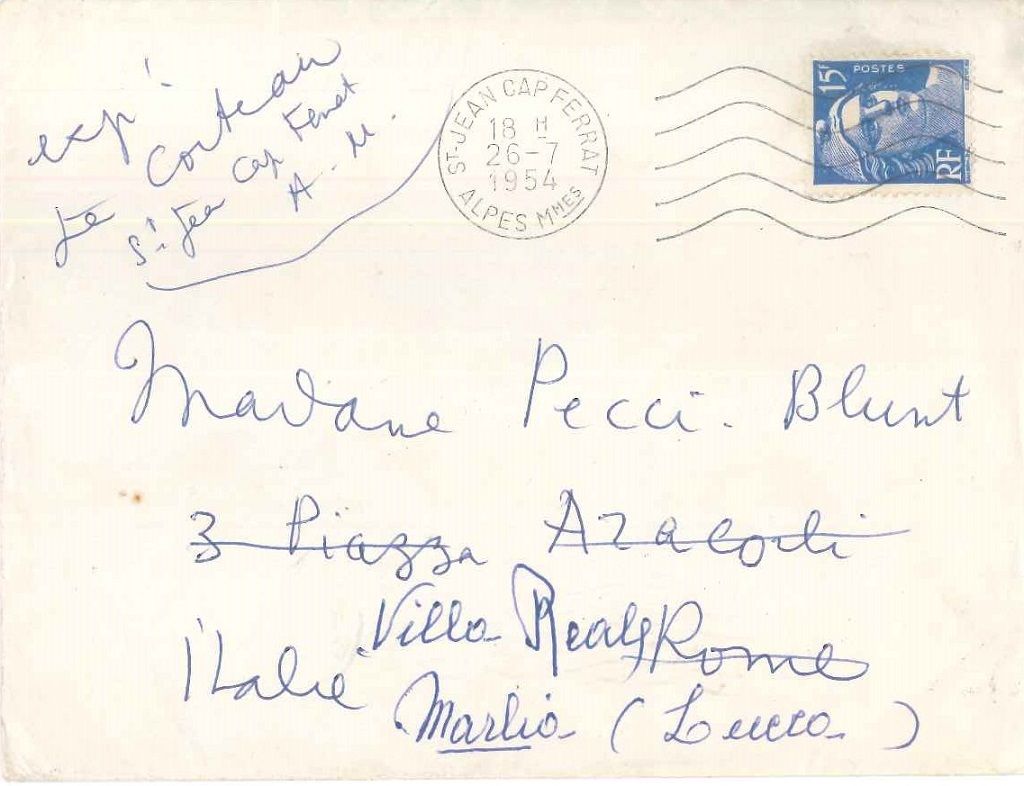 exp!
Je Cocteau
St. Jean Cap Ferrat
A-M.
ST-JEAN CAP FERRAT
18 H
26-7
1954
ALPES MMES
15F POSTES
RF
Madame Pecci-Blunt
3 Piazza Aracoeli
Rome
Italie
Villa Reale
Marlia (Lucca)